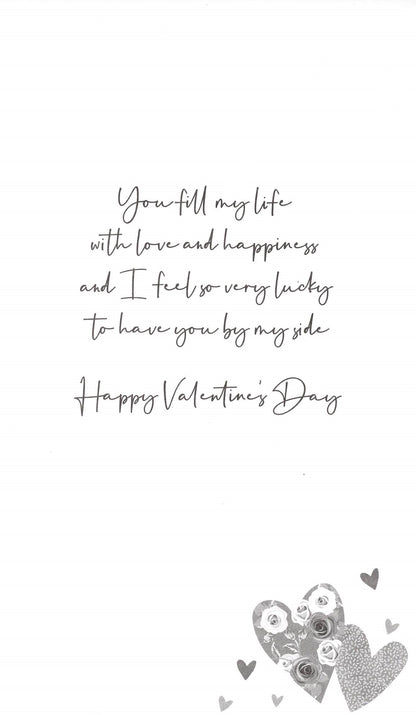 You fill my life
with love and happiness
and I feel so very lucky
to have you by my side
Happy Valentine's Day